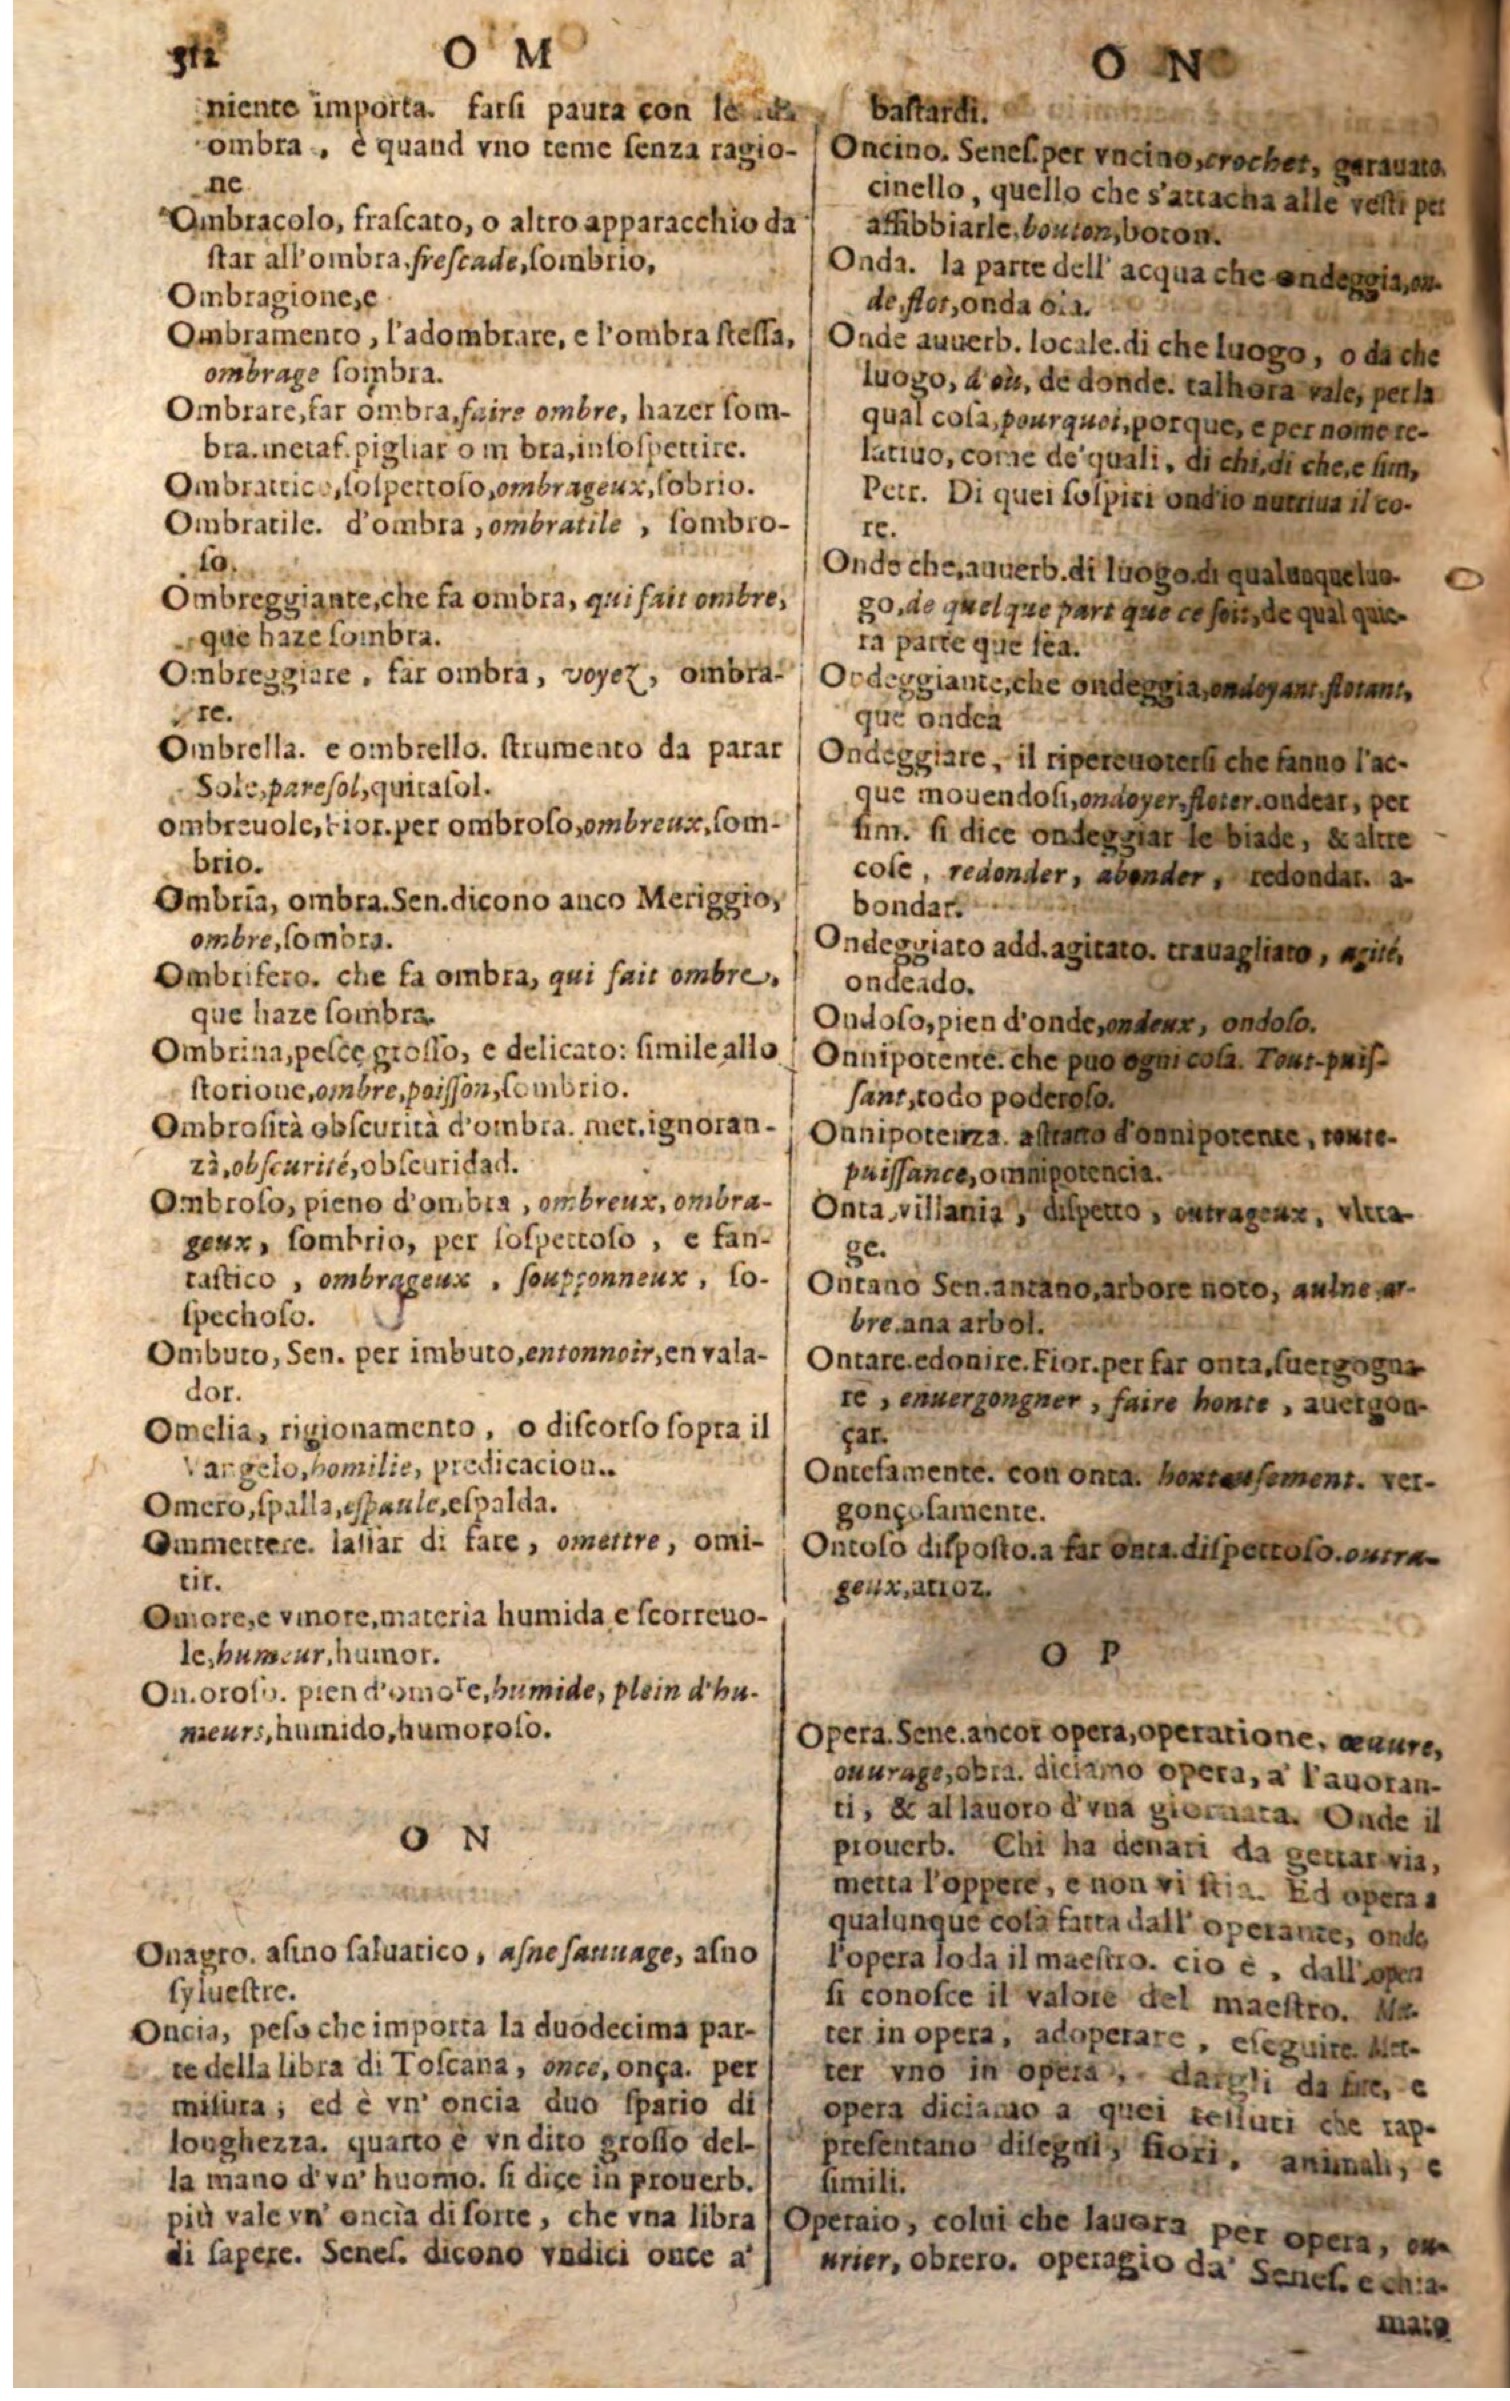 312
O M
niente importa. farsi paura con le
ombra, è quand vno teme senza ragio-
ne
Ombracolo, frascato, o altro apparacchio da
star all'ombra, frescade, sombrio,
Ombragione, e
Ombramento, l'adombrare, e l'ombra stessa,
ombrage sombra.
Ombrare, far ombra, faire ombre, hazer som-
bra. metaf. pigliar o m bra, insospettire.
Ombrattico, sospettoso, ombrageux, sobrio.
Ombratile. d'ombra, ombratile, sombro-
so.
Ombreggiante, che fa ombra, qui fait ombre,
que haze sombra.
Ombreggiare, far ombra, voyez, ombra-
re.
Ombrella. e ombrello. strumento da parar
Sole, paresol, quitasol.
ombreuole, Fior. per ombroso, ombreux, som-
brio.
Ombrìa, ombra. Sen. dicono anco Meriggio,
ombre, sombra.
Ombrifero. che fa ombra, qui fait ombre,
que haze sombra.
Ombrina, pesce grosso, e delicato: simile allo
storione, ombre, poisson, sombrio.
Ombrosità obscurità d'ombra. met. ignoran-
za, obscurité, obscuridad.
Ombroso, pieno d'ombra, ombreux, ombra-
geux, sombrio, per sospettoso, e fan-
tastico, ombrageux, soupçonneux, so-
spechoso.
Ombuto, Sen. per imbuto, entonnoir, envala-
dor.
Omelia, rigionamento, o discorso sopra il
Vangelo, homilie, predicacion..
Omero, spalla, espaule, espalda.
Ommettere. lassar di fare, omettre, omi-
tir.
Omore, e vmore, materia humida e scorreuo-
le, humeur, humor.
Omoroso. pien d'omore, humide, plein d'hu-
meurs, humido, humoroso.
O N
Onagro. asino saluatico, asne sauuage, asno
syluestre.
Oncia, peso che importa la duodecima par-
te della libra di Toscana, once, onça. per
misura; ed è vn' oncia duo spatio di
longhezza. quarto è vn dito grosso del-
la mano d'vn' huomo. si dice in prouerb.
più vale vn' oncia di sorte, che vna libra
di sapere. Senes. dicono vndici once a'
O N
bastardi.
Oncino. Senes. per vncino, crochet, garauato.
cinello, quello che s'attacha alle vesti per
affibbiarle, bouton, boton.
Onda. la parte dell' acqua che ondeggia, on-
de, flot, onda ola.
Onde auuerb. locale. di che luogo, o da che
luogo, d'où, de donde. talhora vale, per la
qual cosa, pourquoi, porque, e per nome re-
latiuo, come de' quali, di chi, di che, e sim,
Petr. Di quei sospiri ond'io nutriua il co-
re.
Onde che, auuerb. di luogo. di qualunque luo-
go, de quelque part que ce soit, de qual quie-
ra parte que sea.
Ondeggiante, che ondeggia, ondoyant flotant,
que ondea
Ondeggiare, il ripercuotersi che fanno l'ac-
que mouendosi, ondoyer, floter. ondear, per
sim. si dice ondeggiar le biade, & altre
cose, redonder, abonder, redondar. a-
bondar.
Ondeggiato add. agitato. trauagliato, agité,
ondeado.
Ondoso, pien d'onde, ondeux, ondoso.
Onnipotente. che puo ogni cosa. Tout-puis-
sant, todo poderoso.
Onnipotenza. astratto d'onnipotente, toute-
puissance, omnipotencia.
Onta, villania, dispetto, outrageux, vltra-
ge.
Ontano Sen. antano, arbore noto, aulne ar-
bre. ana arbol.
Ontare. edonire. Fior. per far onta, suergogna-
re, enuergongner, faire honte, auergon-
çar.
Ontesamente. con onta. honteusement. ver-
gonçosamente.
Ontoso disposto. a far onta. dispettoso. outra-
geux, atroz.
O P
Opera. Sene. ancor opera, operatione, œuure,
ouurage, obra. diciamo opera, a' lauoran-
ti, & al lauoro d'vna giornata. Onde il
prouerb. Chi ha denari da gettar via,
metta l'oppere, e non vi stia. Ed opera a
qualunque cosa fatta dall' operante, onde
l'opera loda il maestro. cio è, dall'opera
si conosce il valore del maestro. Met-
ter in opera, adoperare, eseguire. Met-
ter vno in opera, dargli da fare, e
opera diciamo a quei tessuti che rap-
presentano disegni, fiori, animali, e
simili.
Operaio, colui che lauora per opera, ou-
urier, obrero. operagio da' Senes. e chia-
mato